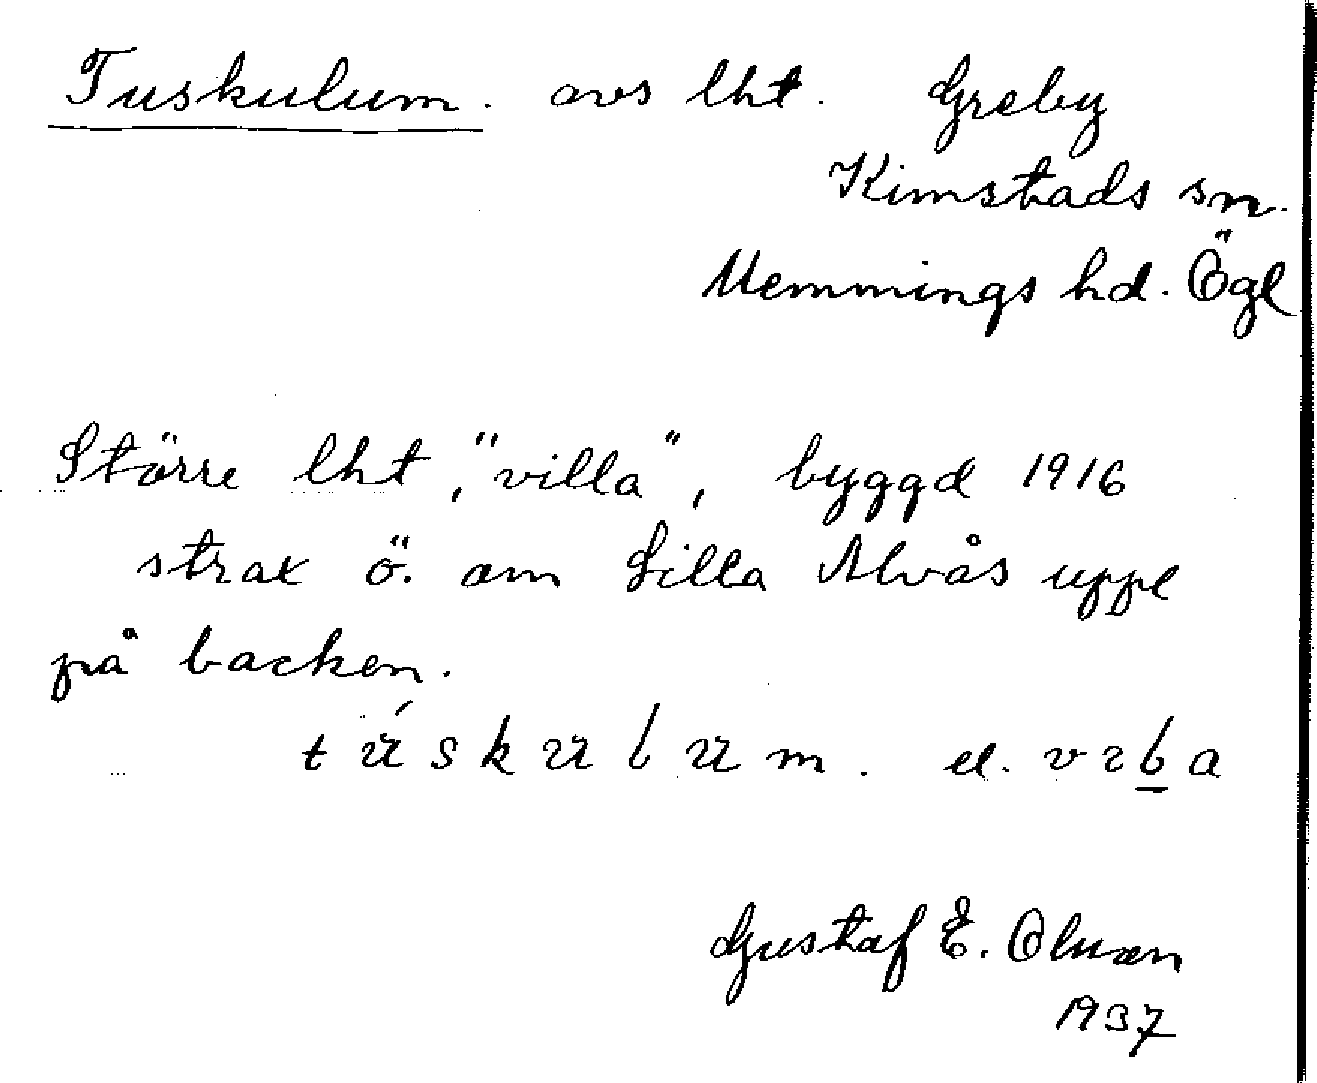 Tuskulum. avs lht. Greby
Kimstads sn.
Memmings hd. Ögl
Större lht, "villa", byggd 1916
strax ö. om Lilla Alvås uppe
på backen.
túskulum. el. vila
Gustaf E. Olsson
1937